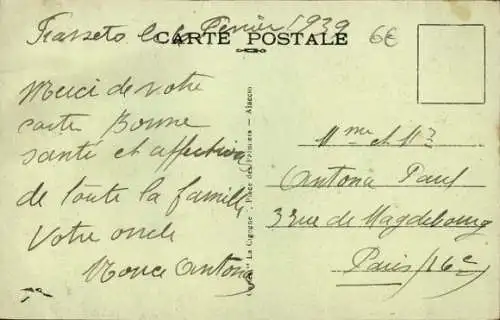 Frasseto le 6 Fevrier 1939
CARTE POSTALE
6€
Merci de votre
carte Bonne
santé et affection
de toute la famille
Votre oncle
Antona
Place des Palmiers - Ajaccio
" La Cigogne "
Mme et Mr
Antona Paul
3 rue de Magdebourg
Paris (16e)